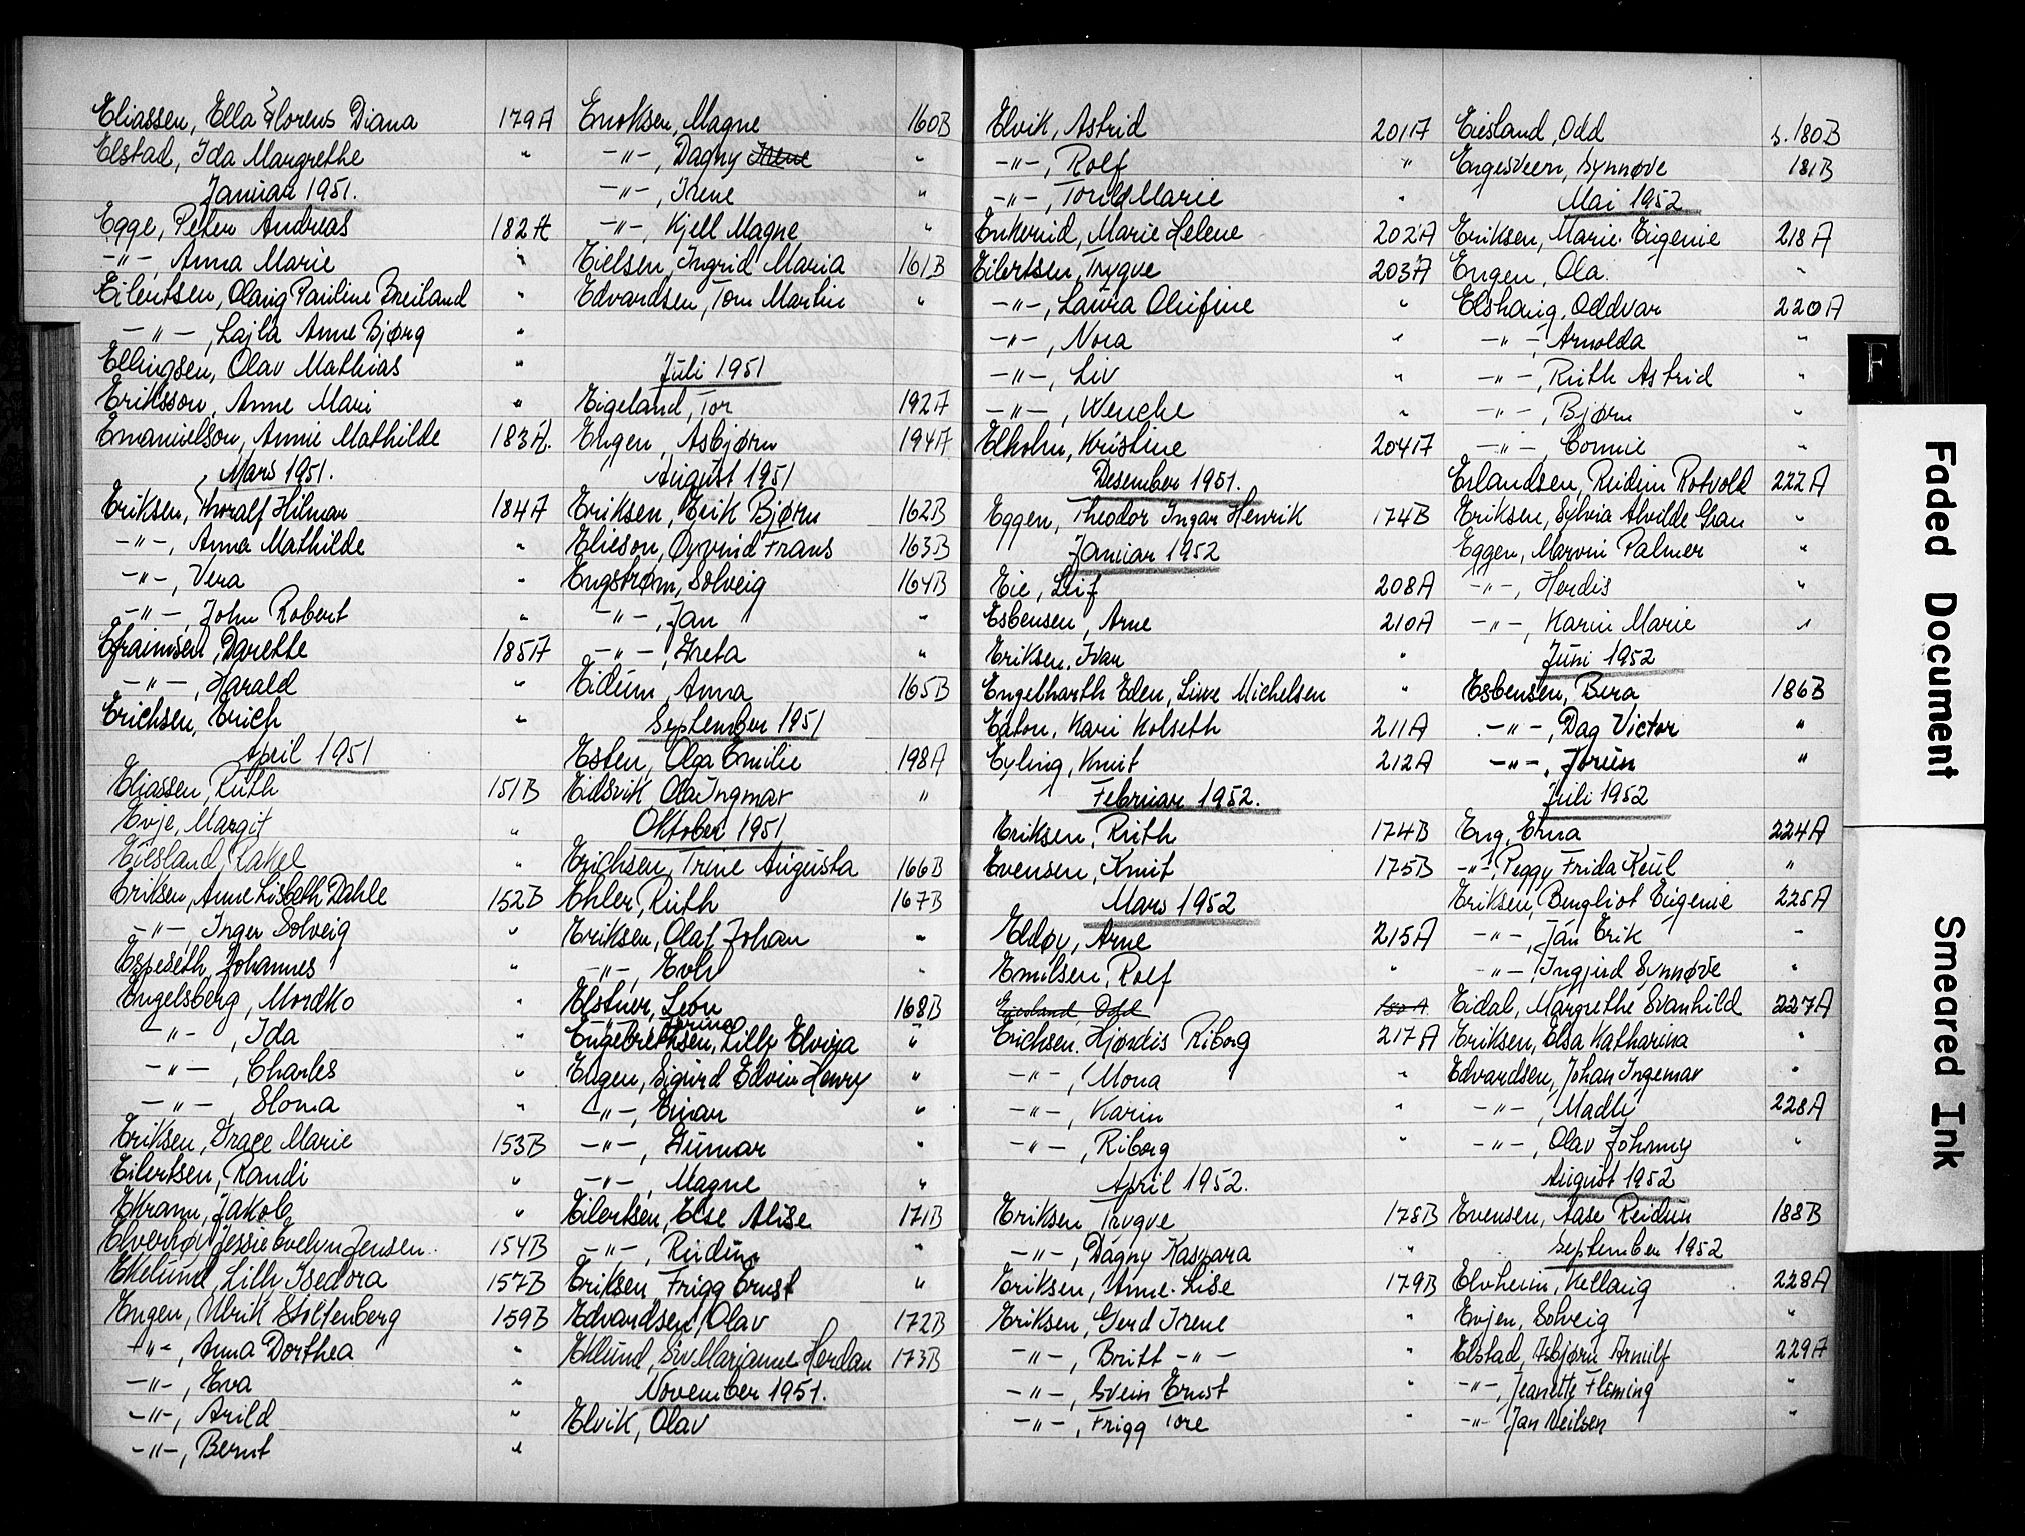 Eliassen, Ella Florens Diana 179A
Elstad, Ida Margrethe "
Januar 1951.
Egge, Peter Andreas 182A
-"-, Anna Marie "
Eilertsen, Olaug Pauline Breiland "
-"-, Lajla Anne Bjørg "
Ellingsen, Olav Mathias "
Eriksson, Anne Mari "
Emanuelson, Annie Mathilde 183A.
Mars 1951.
Eriksen, Thoralf Hilmar 184A
-"-, Anna Mathilde "
-"-, Vera "
-"-, John Robert "
Efraimsen, Dorette 185A
-"-, Harald "
Erichsen, Erich "
April 1951
Eliassen, Ruth 151B
Evje, Margit "
Eilesland, Rakel "
Eriksen, Anne Lisbeth Dahle 152B
-"-, Inger Solveig "
Espeseth, Johannes "
Engelsberg, Mordko "
-"-, Ida "
-"-, Charles "
-"-, Sloma "
Eriksen, Grace Marie 153B
Eilertsen, Randi "
Ekrann, Jakob "
Elverhøi, Jessie Evelyn Jensen. 154B
Ekelund, Lilly Isedora 157B
Engen, Ulrik Stoltenberg 159B
-"-, Anna Dorthea "
-"-, Eva "
-"-, Arild "
-"-, Bernt "
Enoksen, Magne 160B
-"-, Dagny Irene "
-"-, Irene "
-"-, Kjell Magne "
Eielsen, Ingrid Maria 161B
Edvardsen, Tom Martin "
Juli 1951
Eigeland, Tor 192A
Engen, Asbjørn 194A
August 1951
Eriksen, Erik Bjørn 162B
Elieson, Øyvind Frans 163B
Engstrøm, Solveig 164B
-"-, Jan "
-"-, Greta "
Eidum, Anna 165B
September 1951
Esten, Olga Emilie 198A
Eidsvik, Ola Ingmar "
Oktober 1951
Erichsen, Trine Augusta 166B
Ehler, Ruth 167B
Eriksen, Olaf Johan "
-"-, Evly "
Elstner, Leon 168B
Engebrethsen, Lilly Elvira "
Engen, Sigurd Edvin Henry "
-"-, Einar "
-"-, Gunnar "
-"-, Magne "
Eilertsen, Else Alise 171B
-"-, Reidun "
Eriksen, Frigg Ernst "
Edvardsen, Olav 172B
Eklund, Siv Marianne Herdan 173B
November 1951.
Elvik, Olav
Elvik, Astrid 201A
-"-, Rolf "
-"-, Torild Marie "
Enkerud, Marie Helene 202A
Eilertsen, Trygve 203A
-"-, Laura Olufine "
-"-, Nora "
-"-, Liv "
-"-, Wenche "
Elholm, Kristine 204A
Desember 1951.
Eggen, Theodor Ingar Henrik 174B
Januar 1952
Eie, Leif 208A
Esbensen, Arne 210A
Eriksen, Ivan "
Engelharth Eden, Lisse Michelsen "
Eaton, Kari Kolseth 211A
Eyling, Knut 212A
Februar 1952.
Eriksen, Ruth 174B
Evensen, Knut 175B
Mars 1952
Eldøy, Arne 215A
Emilsen, Rolf "
Eiesland, Odd
Erichsen, Hjørdis Riborg 217A
-"-, Mona "
-"-, Karin "
-"-, Riborg "
April 1952.
Eriksen Trygve 178B
-"-, Dagny Kaspara "
Eriksen, Anne-Lise 179B
Eriksen, Gerd Irene "
-"-, Britt -"- "
-"-, Svein Ernst "
-"-, Frigg Tore "
Eiesland, Odd s.180B
Engesveen, Synnøve 181B
Mai 1952
Eriksen, Marie Eugenie 218A
Engen, Ola. "
Elshaug, Oddvar 220A
-"-, Arnolda "
-"-, Ruth Astrid "
-"-, Bjørn "
-"-, Connie "
Erlandsen, Reidun Rotvold 222A
Eriksen, Sylvia Alvilde Gran "
Eggen, Marvin Palmer "
-"-, Herdis "
-"-, Karin Marie "
Juni 1952
Esbensen, Bera 186B
-"-, Dag Victor "
-"-, Jorun "
Juli 1952
Eng, Erna 224A
-"-, Peggy Frida Keul "
Eriksen, Bengliot Eugenie 225A
-"-, Jan Erik "
-"-, Ingjerd Synnøve "
Eidal, Margrethe Svanhild 227A
Eriksen, Elsa Katharina "
Edvardsen, Johan Ingemar "
-"-, Madly 228A
-"-, Olav Johnny "
August 1952
Evensen, Aase Reidun 188B
September 1952
Elvheim, Kellaug 228A
Evjen, Solveig "
Elstad, Asbjørn Arnulf 229A
-"-, Jeanette Fleming "
-"- Jan Neilsen "
F
Faded Document
Smeared Ink